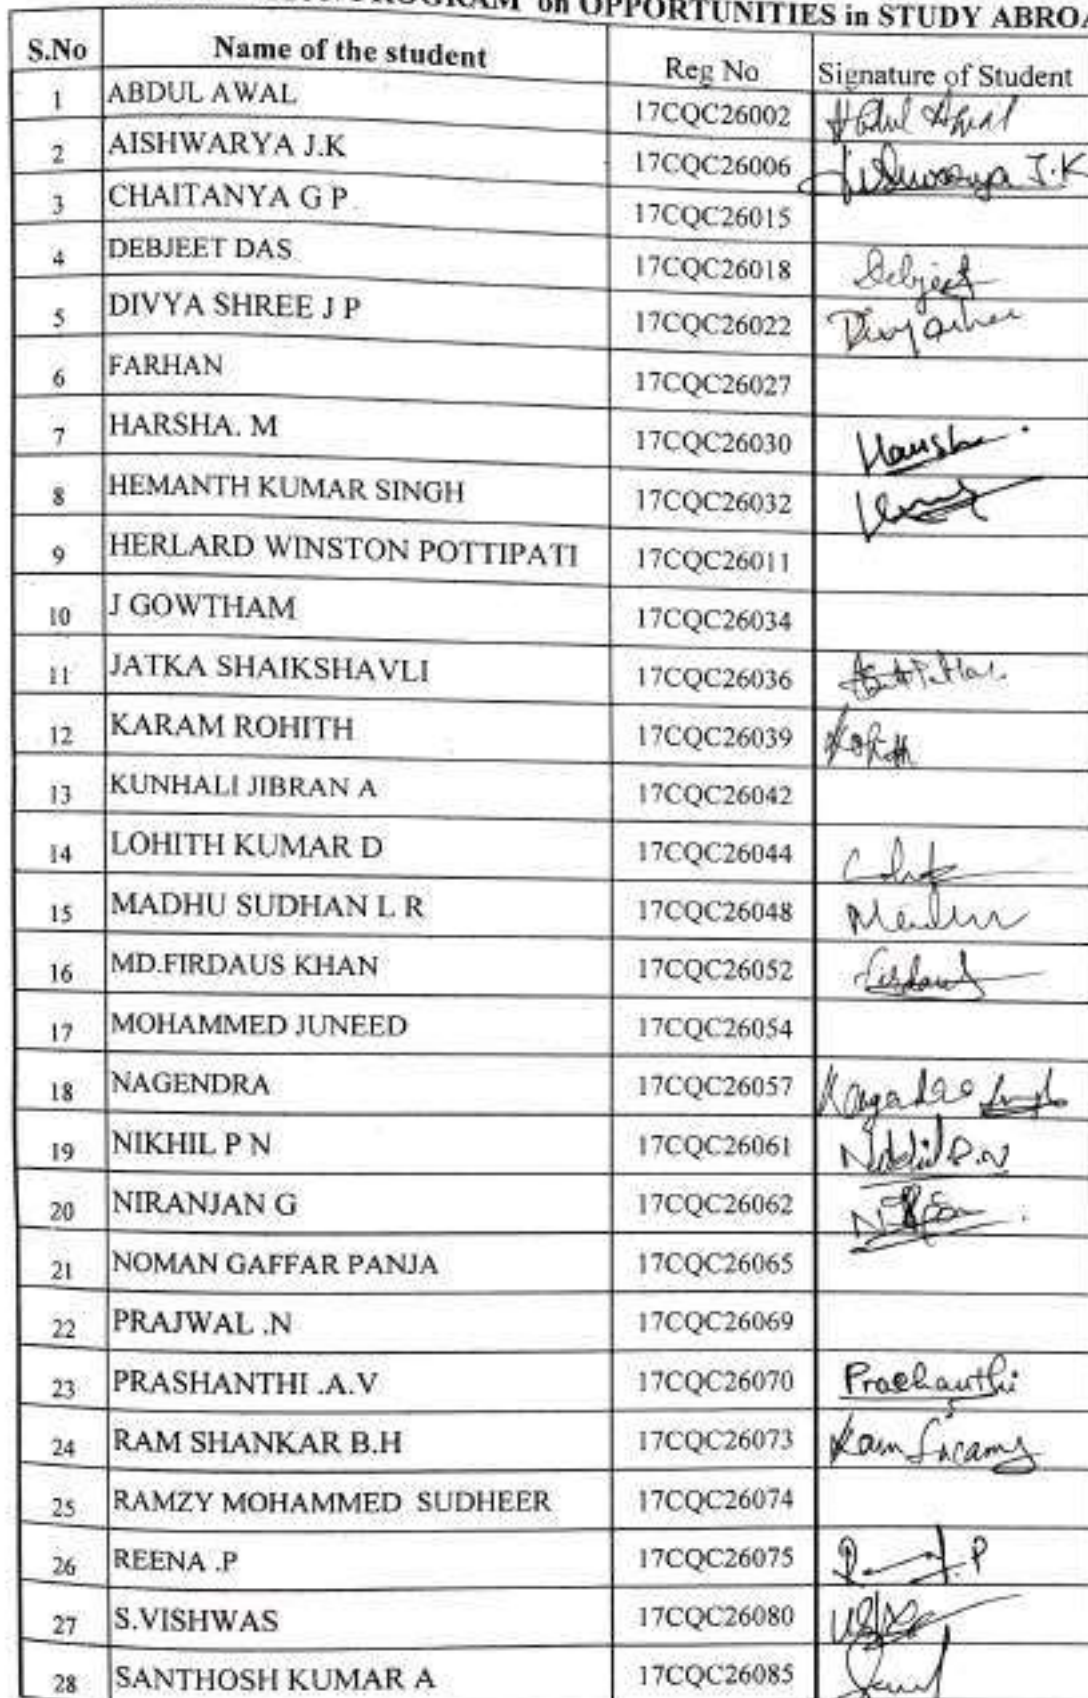 PROGRAM on OPPORTUNITIES in STUDY
S.No Name of the student Reg No Signature of Student
1 ABDUL AWAL 17CQC26002 Abdul Awal
2 AISHWARYA J.K 17CQC26006 Aishwarya J.K
3 CHAITANYA G P 17CQC26015
4 DEBJEET DAS 17CQC26018 Debjeet
5 DIVYA SHREE J P 17CQC26022
6 FARHAN 17CQC26027
7 HARSHA. M 17CQC26030 Harsha
8 HEMANTH KUMAR SINGH 17CQC26032
9 HERLARD WINSTON POTTIPATI 17CQC26011
10 J GOWTHAM 17CQC26034
11 JATKA SHAIKSHAVLI 17CQC26036
12 KARAM ROHITH 17CQC26039
13 KUNHALI JIBRAN A 17CQC26042
14 LOHITH KUMAR D 17CQC26044
15 MADHU SUDHAN L R 17CQC26048
16 MD.FIRDAUS KHAN 17CQC26052 Firdaus
17 MOHAMMED JUNEED 17CQC26054
18 NAGENDRA 17CQC26057
19 NIKHIL P N 17CQC26061 Nikhil P.N
20 NIRANJAN G 17CQC26062
21 NOMAN GAFFAR PANJA 17CQC26065
22 PRAJWAL .N 17CQC26069
23 PRASHANTHI .A.V 17CQC26070 Prashanthi
24 RAM SHANKAR B.H 17CQC26073
25 RAMZY MOHAMMED SUDHEER 17CQC26074
26 REENA .P 17CQC26075
27 S.VISHWAS 17CQC26080
28 SANTHOSH KUMAR A 17CQC26085